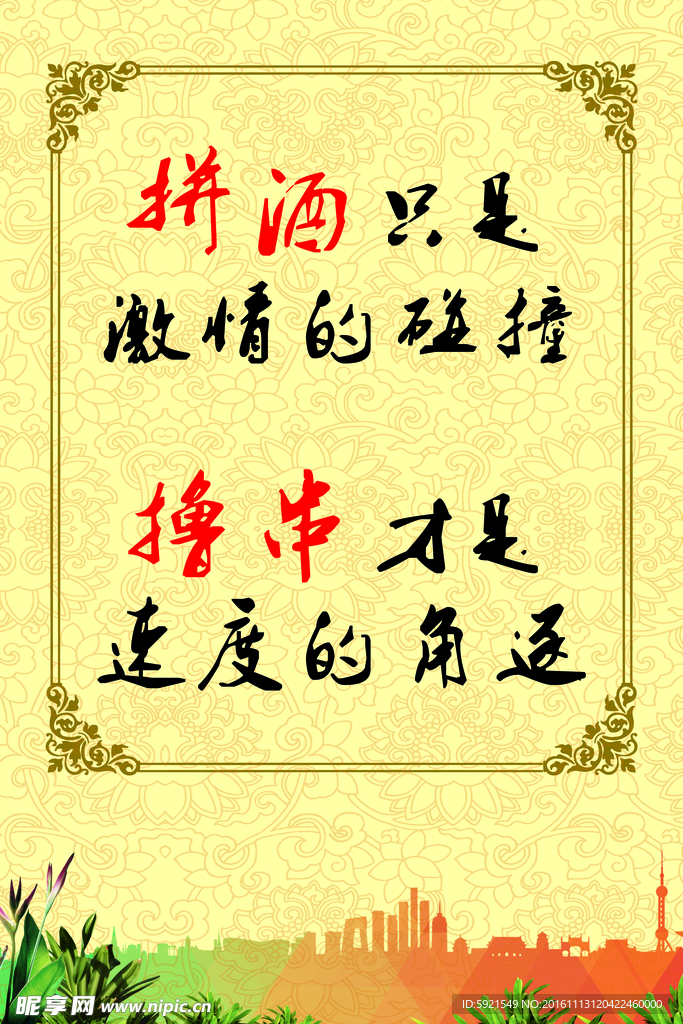 拼酒只是
激情的碰撞
撸串才是
速度的角逐
昵享网 www.nipic.cn
ID:5921549 NO:20161113120422460000